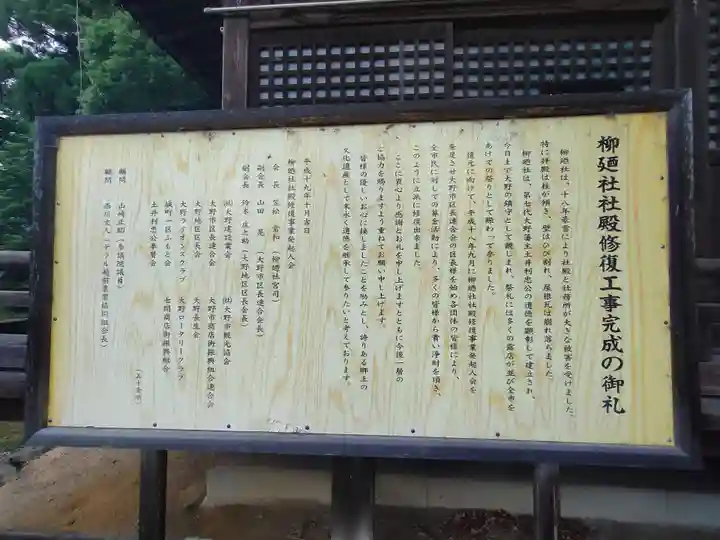 柳廼社社殿修復工事完成の御礼
柳廼社は、十八年豪雪により社殿と社務所が大きな被害を受けました。
特に拝殿は柱が傾き、壁はひび割れ、屋根瓦は崩れ落ちました。
柳廼社は、第七代大野藩主土井利忠公の遺徳を顕彰して建立され、
今日まで大野の鎮守として親しまれ、祭礼には多くの露店が並び全市を
あげての祭りとして賑わって参りました。
復元に向けて、平成十八年九月に柳廼社社殿修復事業発起人会を
発足させ大野市区長連合会の区長様を始め各団体の皆様により、
全市民に対しての募金活動により、多くの皆様から貴い浄財を頂き、
このように立派に修復出来ました。
ここに衷心より感謝とお礼を申し上げますとともに今後一層の
ご協力を賜りますよう重ねてお願い申し上げます。
皆様の優しいお心に接しましたことを励みとし、誇りある郷土の
文化遺産として末永く遺徳を継承して参りたいと考えております。
平成十九年十月吉日
柳廼社社殿修復事業発起人会
会長 笠松 宏和(柳廼社宮司)
副会長 山田 晃(大野市区長連合会長)
副会長 鈴木 庄之助(大野地区区長会長)
㈱大野建設業会 ㈳大野市観光協会
大野市区長連合会 大野市商店街振興組合連合会
大野地区区長会 大野長生会
大野ライオンズクラブ 大野ロータリークラブ
城町一区ふれあ会 七間商店街振興組合
土井利忠公奉賛会
(五十音順)
顧問 山崎正昭(参議院議員)
顧問